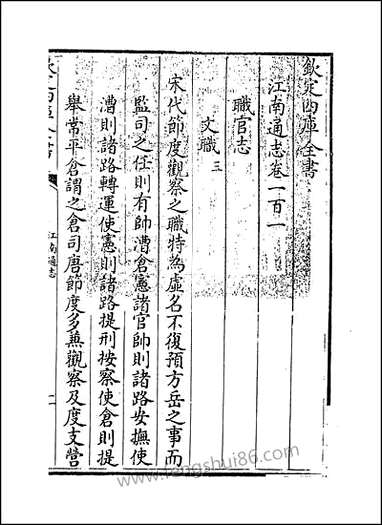 欽定四庫全書
江南通志卷一百一
職官志
文職三
宋代節度觀察之職特為虛名不復預方岳之事而
監司之任則有帥漕倉憲諸官帥則諸路安撫使
漕則諸路轉運使憲則諸路提刑按察使倉則提
舉常平倉謂之倉司唐節度多兼觀察及度支營
江南通志
www.fengshui86.com